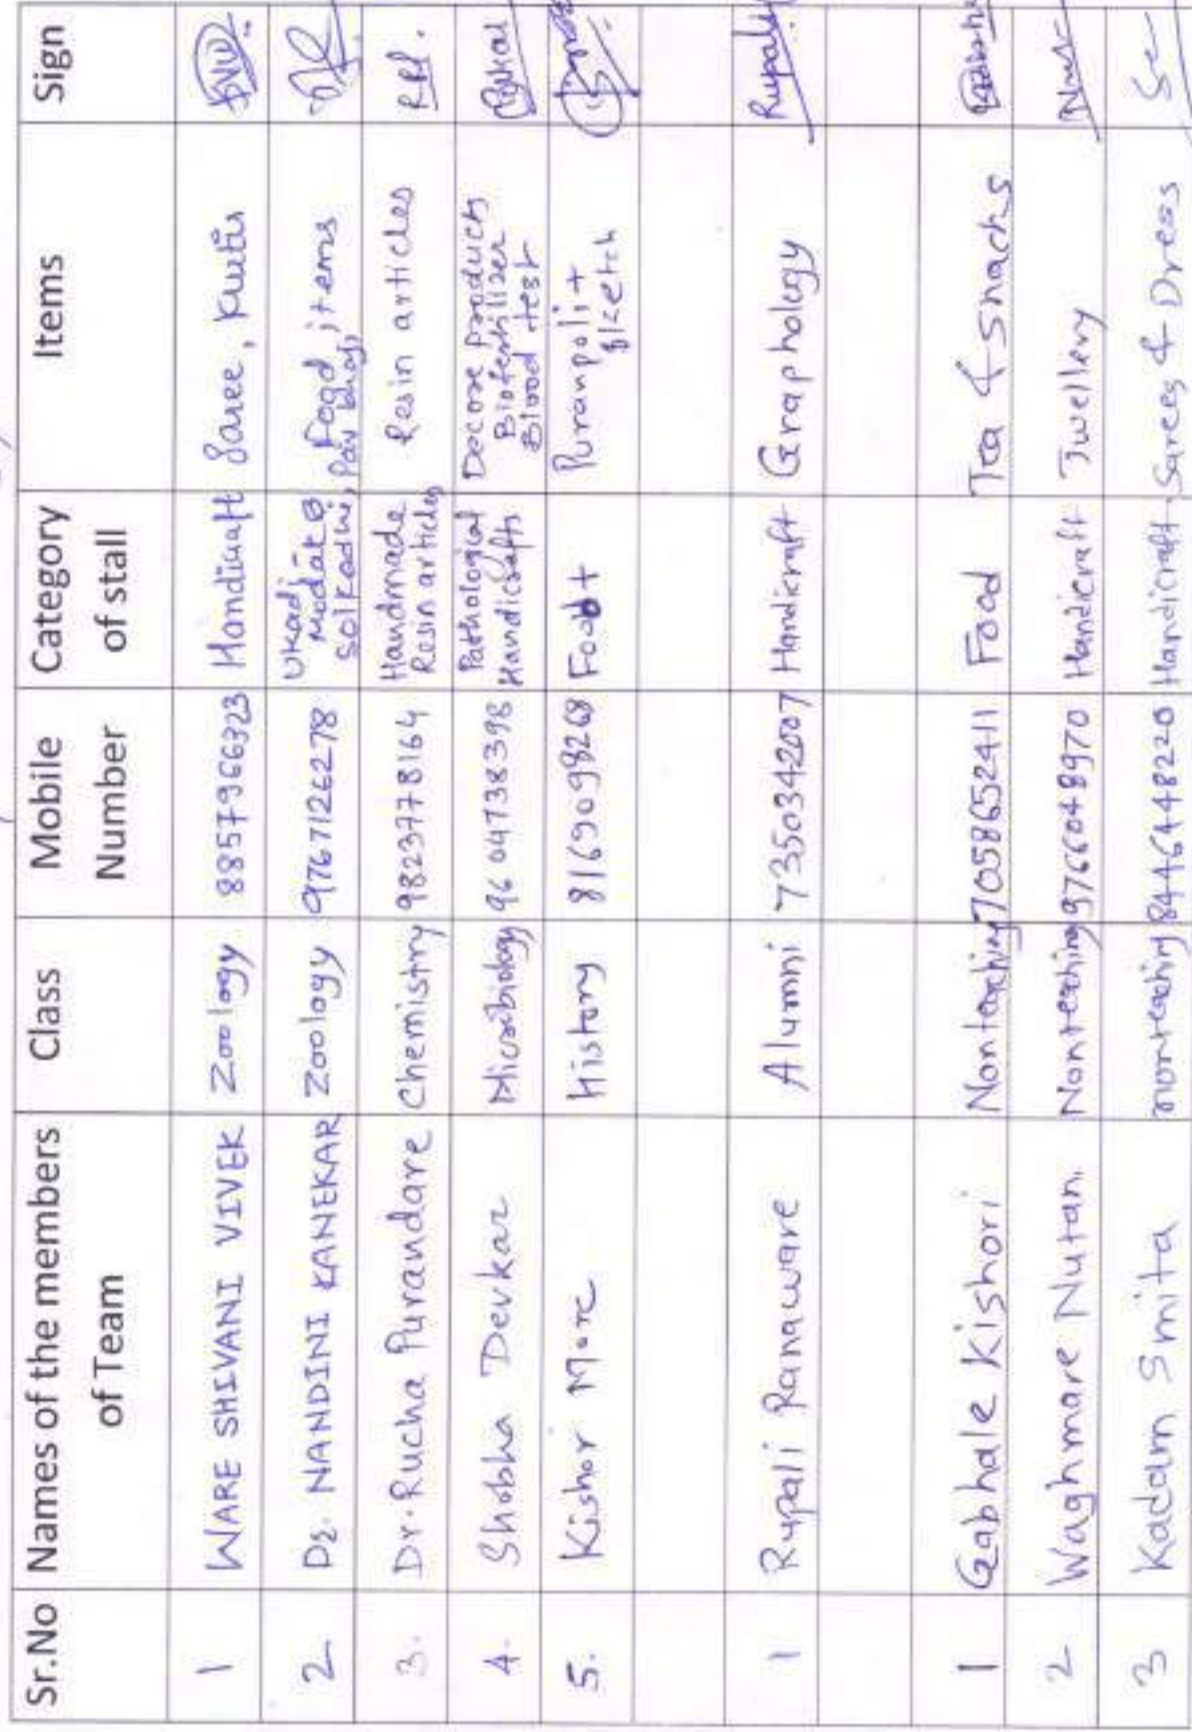 Sr.No Names of the members of Team Class Mobile Number Category of stall Items Sign
1 WARE SHIVANI VIVEK Zoology 8857966323 Handicraft Saree, Kurtis
2 Dr. NANDINI KANEKAR Zoology 9767126278 Ukadi Modak Solkadhi, Pav bhaji, Food items
3. Dr. Rucha Purandare Chemistry 9823778164 Handmade Resin articles Resin articles RPl.
4. Shobha Devkar Microbiology 9604738398 Pathological Handicrafts Decore products Biofertilizer Blood test
5. Kishor More History 8169098268 Food+ Puranpoli+
1 Rupali Ranaware Alumni 7350342007 Handicraft Graphology Rupali
1 Gabhale Kishori Nonteaching 7058652411 Food Tea & Snacks
2 Waghmare Nutan. Nonteaching 9766048970 Handicraft Jwellery
3 Kadam Smita nonteaching 8446448220 Handicraft, Sarees & Dress